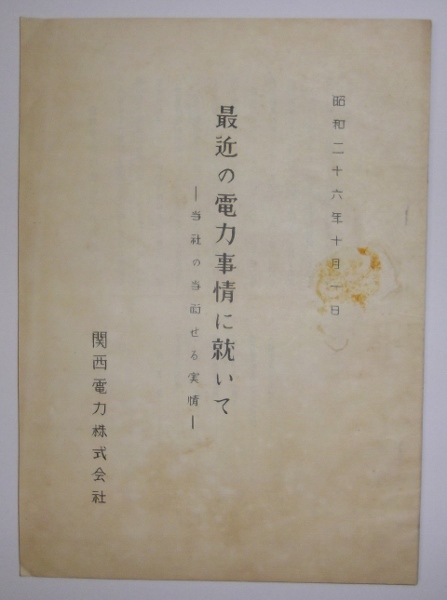 昭和二十六年十月一日
最近の電力事情に就いて
―当社の当面せる実情―
関西電力株式会社